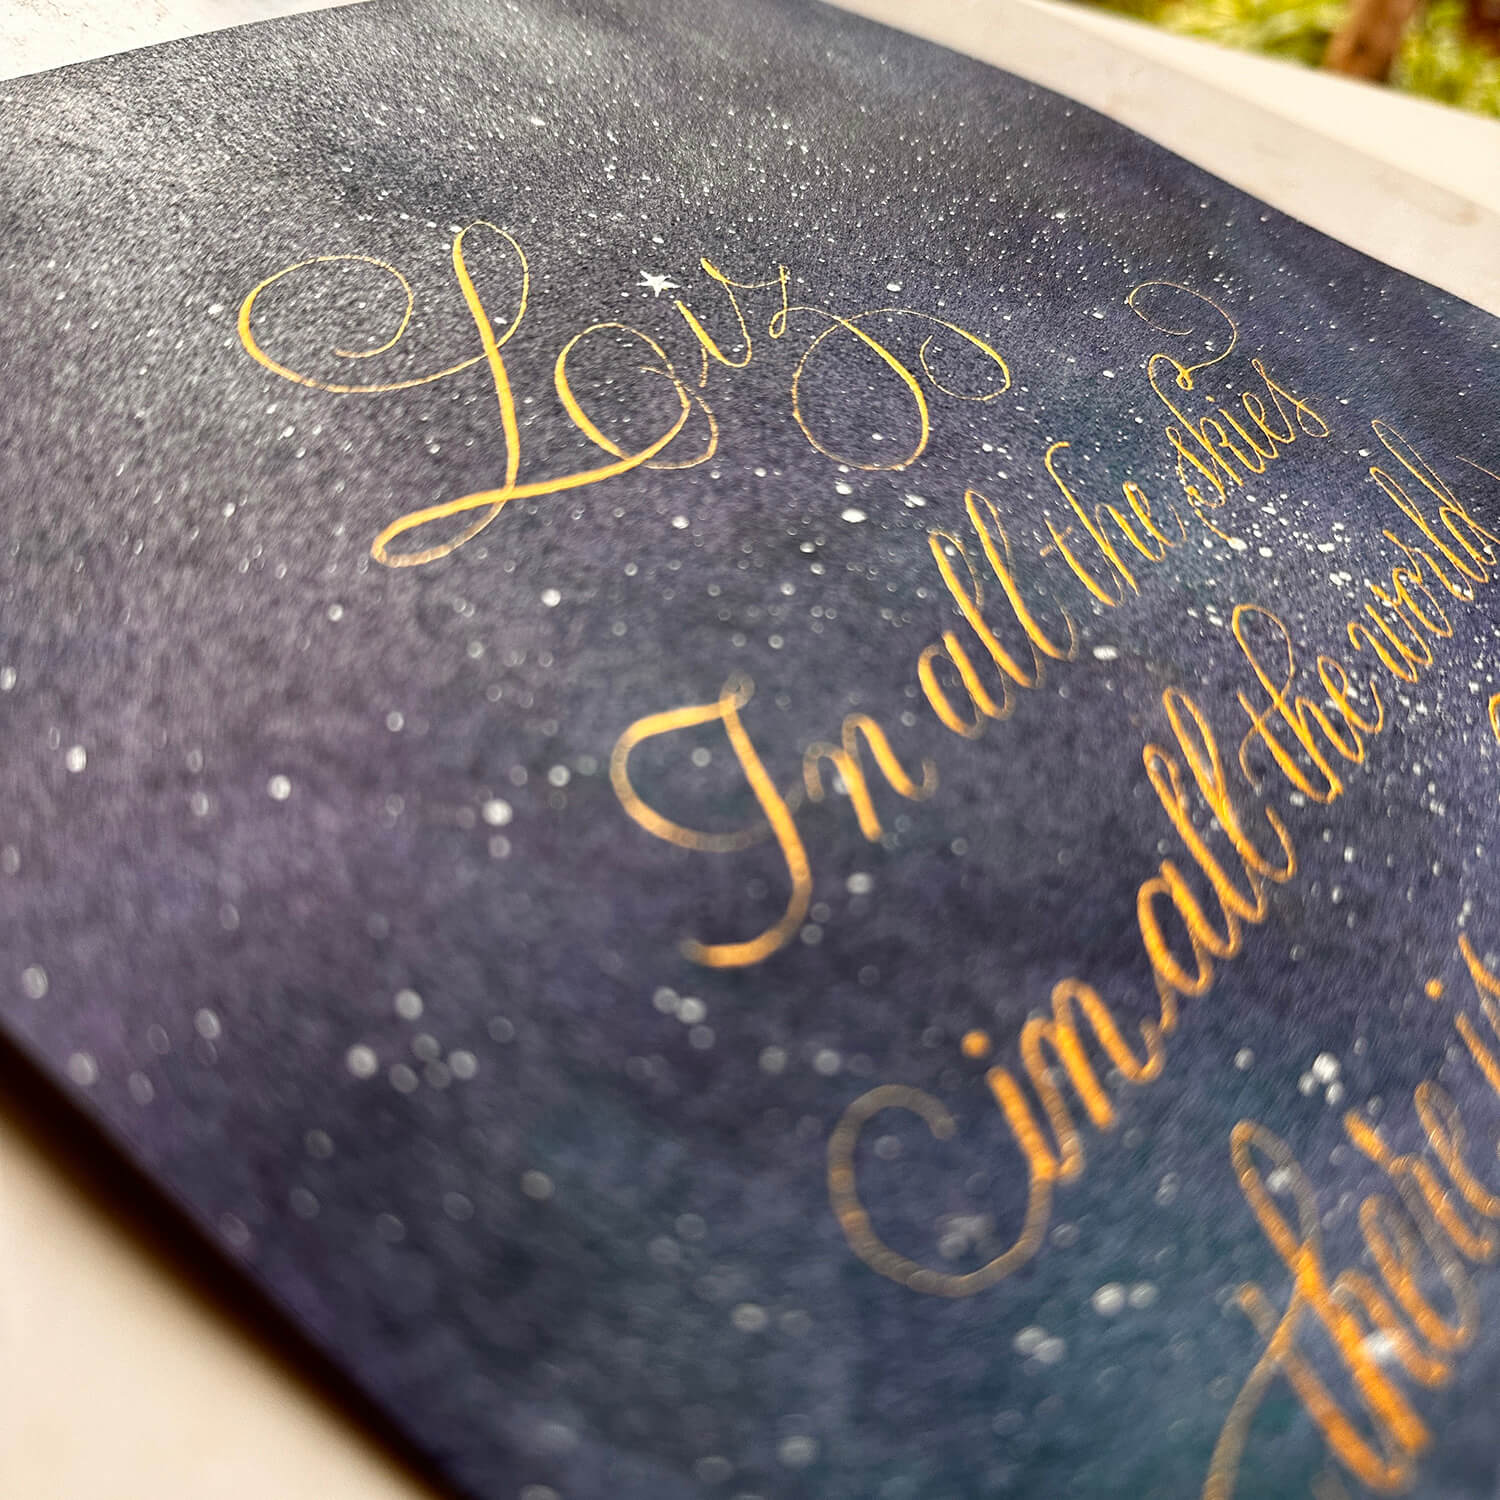 In all the skies
in all the world
there is